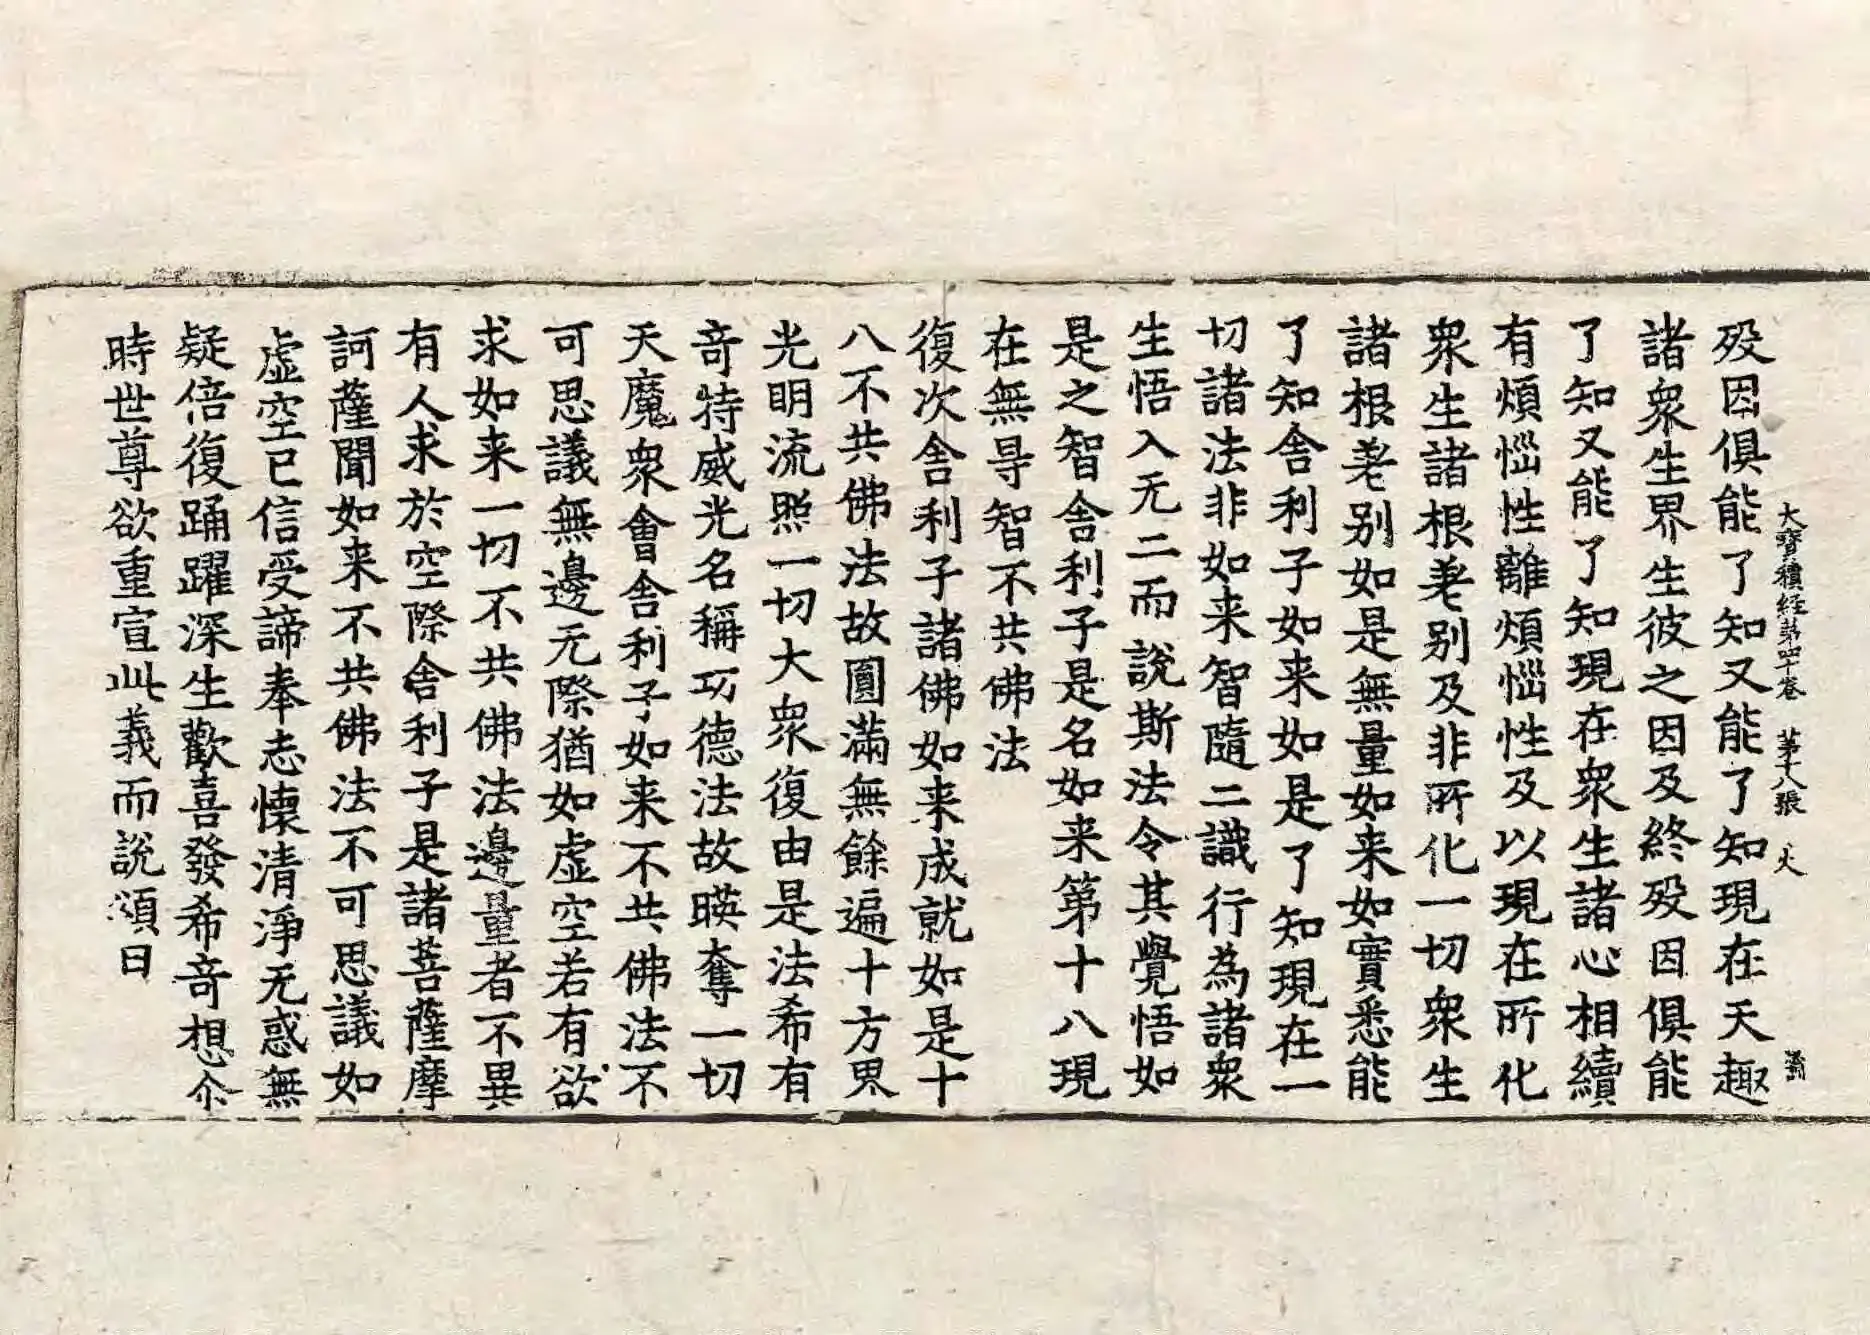 大寶積經第四十卷 第十八張 火
歿因俱能了知又能了知現在天趣
諸衆生界生彼之因及終歿因俱能
了知又能了知現在衆生諸心相續
有煩惱性離煩惱性及以現在所化
衆生諸根差别及非所化一切衆生
諸根差别如是無量如来如實悉能
了知舎利子如来如是了知現在一
切諸法非如来智隨二識行為諸衆
生悟入无二而說斯法令其覺悟如
是之智舎利子是名如来第十八現
在無㝵智不共佛法
復次舎利子諸佛如来成就如是十
八不共佛法故圓滿無餘遍十方界
光明流照一切大衆復由是法希有
竒特威光名稱㓛德法故暎奪一切
天魔衆會舎利子如来不共佛法不
可思議無邊无際猶如虛空若有欲
求如来一切不共佛法邊量者不異
有人求於空際舎利子是諸菩薩摩
訶薩聞如来不共佛法不可思議如
虛空已信受諦奉志懐清淨无惑無
疑倍復踊躍深生歡喜發希竒想尒
時世尊欲重宣此義而說頌曰